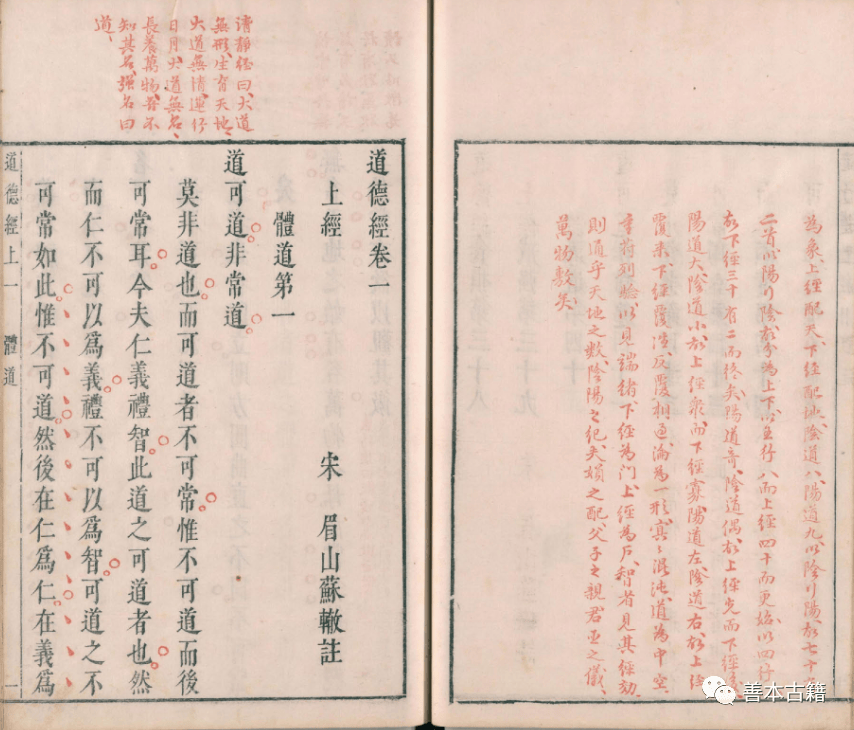 為象、上經配天、下經配地、陰道八、陽道九、以陰行陽、故七十有
二首、以陽行陰、故分為上下、以五行八、而上經四十而更始、以四行
故下經三十有二而終矣、陽道奇、陰道偶、故上經先而下經後、
陽道大、陰道小、故上經衆而下經寡、陽道左、陰道右、故上經
覆来、下經覆徃、反覆相過、淪為一形、冥〻混沌、道為中主、
重符列驗、以見端緒、下經為門、上經為戶、智者見其經効、
則通乎天地之數、陰陽之紀、夫婦之配、父子之親、君臣之儀、
萬物敷矣、
清靜經曰、大道
無形、生育天地、
大道無情、運行
日月、大道無名、
長養萬物、吾不
知其名、強名曰
道、
道德經卷一
上經 宋 眉山蘇轍註
體道第一
道可道非常道
莫非道也而可道者不可常惟不可道而後
可常耳今夫仁義禮智此道之可道者也然
而仁不可以爲義禮不可以爲智可道之不
可常如此惟不可道然後在仁爲仁在義爲
道德經上一 體道 一
善本古籍